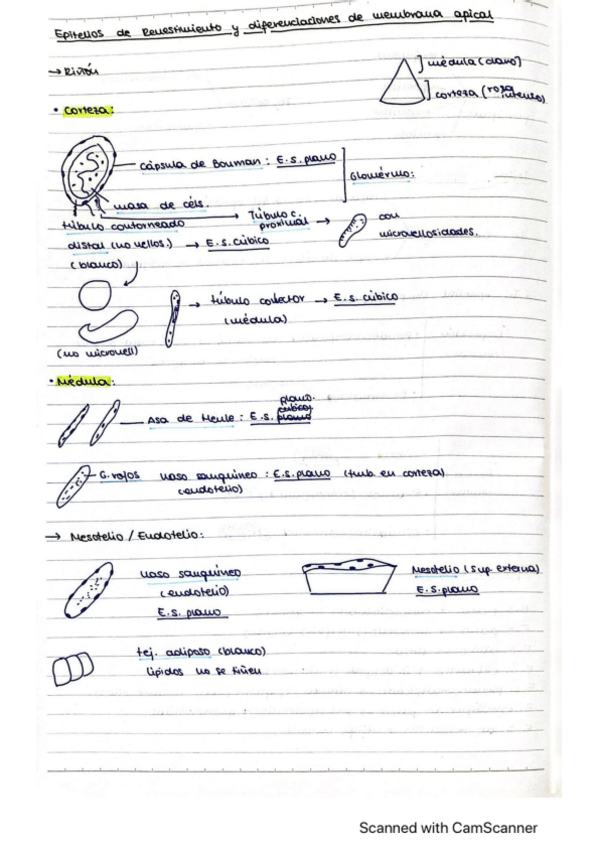 Epitelios de Revestimiento y diferenciaciones de membrana apical
→ Riñón
médula (claro)
corteza (rosa intenso)
• Corteza:
Cápsula de Bouman: E.S. plano
Glomérulo:
masa de céls.
túbulo contorneado distal (no vellos.) → E.S. cúbico
(blanco)
Túbulo c. proximal →
con microvellosidades.
→ túbulo colector → E.S. cúbico
(médula)
(no microvell)
• Médula:
plano.
cúbico
Asa de Henle: E.S. plano
G. rojos vaso sanguíneo: E.S. plano (tmb. en corteza)
(endotelio)
→ Mesotelio / Endotelio:
vaso sanguíneo
(endotelio)
E.S. plano
Mesotelio (sup. externa)
E.S. plano
tej. adiposo (blanco)
lípidos no se tiñen
Scanned with CamScanner